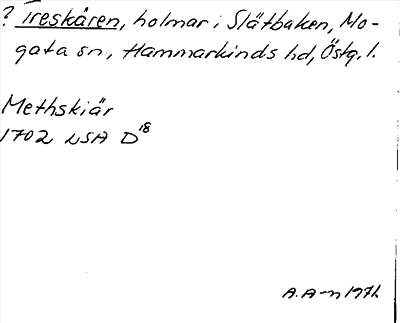 ? Treskären, holmar i Slätbaken, Mo-
gata sn, Hammarkinds hd, Östg. l.
Methskiär
1702 LSA D18
A. A-n 1971.